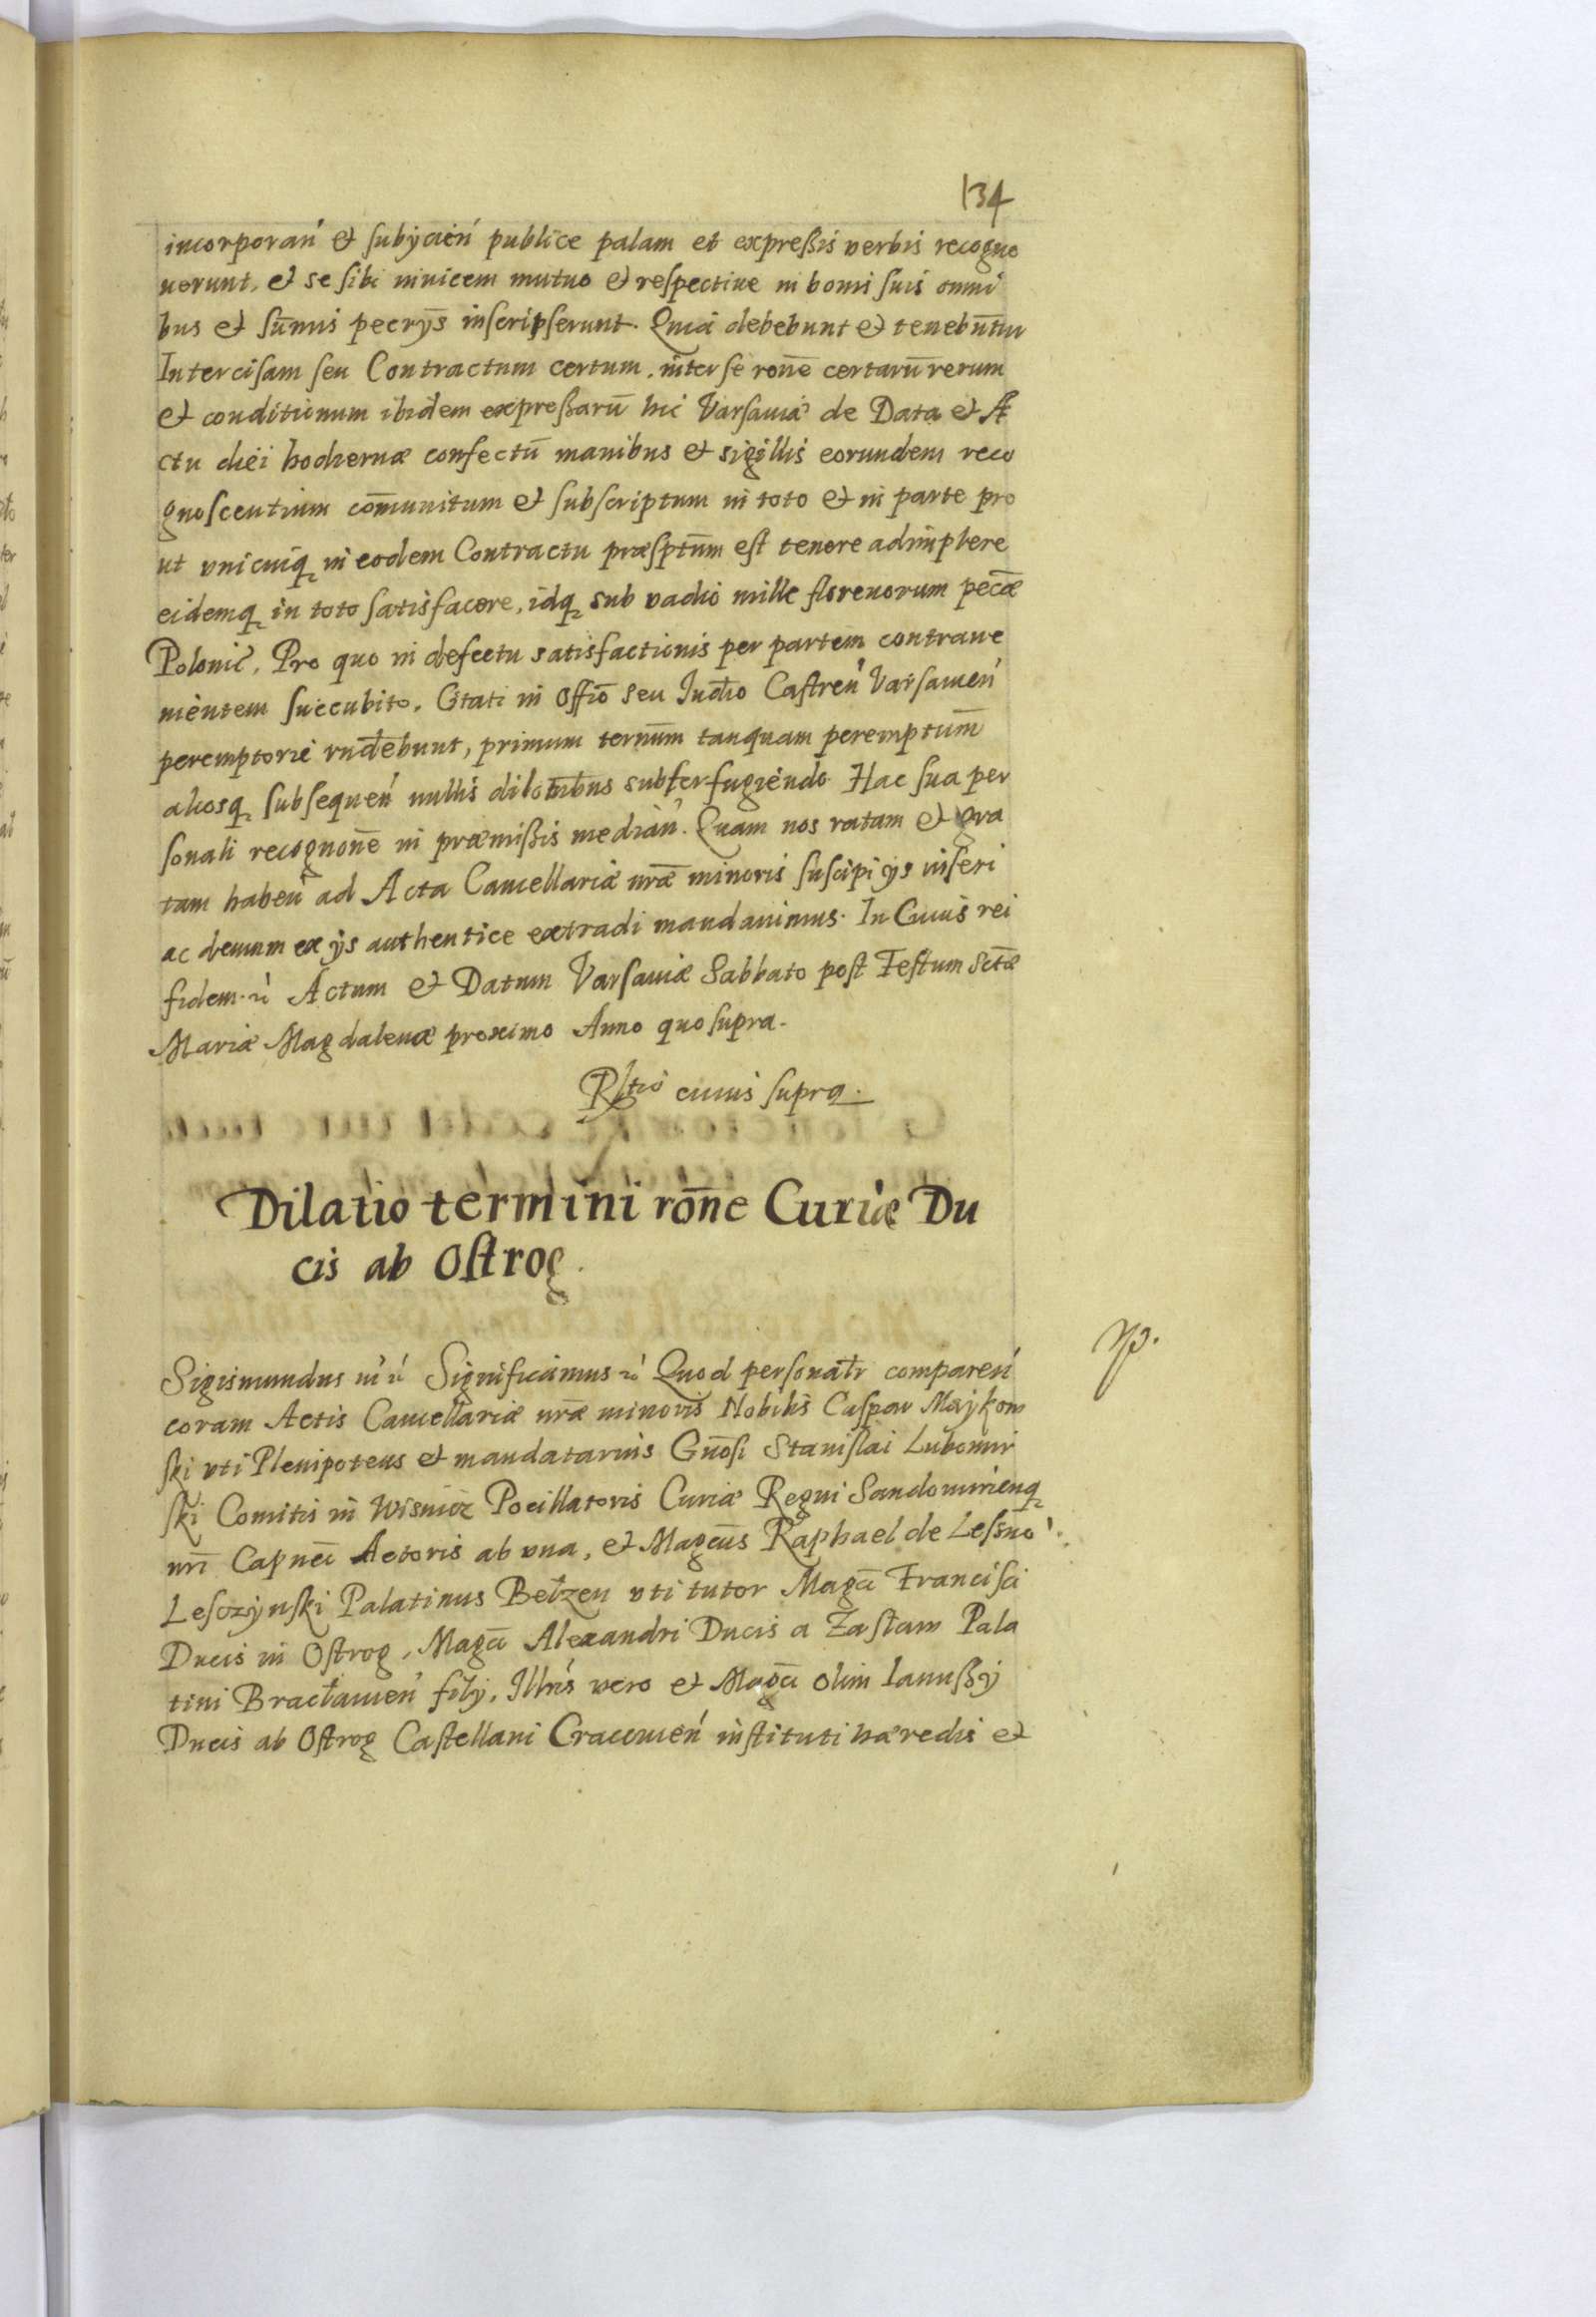 134
incorporań et subijcień publice palam et expressis verbis recogno
uerunt, et se sibi inuicem mutuo et respectiue in bonis suis omni
bus et sūmis pecrijs inscripserunt. Quia debebunt et tenebūtur
Intercisam seu Contractum certum, inter se rone certarū rerum
et conditionum ibidem expressarū hic Varsauiæ de Data et A
ctu diei hodiernæ confectū manibus et sigillis eorundem reco
gnoscentium cōmunitum et subscriptum in toto et in parte pro
ut vnicuiq in eodem Contractu præsptūm est tenore adimplere
eidemq in toto satisfacere, idq sub vadio mille florenorum pecæ
Polonic̄. Pro quo in defectu satisfactionis per partem contraue
nientem succubito. Citati in Offio seu Iudio Castreń Varsauień
peremptorie rn̄debunt, primum ternūm tanquam peremptūm
aliosq subsequeń nullis dilotn̄bus subterfugiendo. Hac sua per
sonali recognone in præmissis mediań. Quam nos ratam et gra
tam habeń ad Acta Cancellariæ nr̄æ minoris suscipi ijs inseri
ac demum ex ijs authentice extradi mandauimus. In Cuius rei
fidem. etc Actum et Datum Varsauiæ Sabbato post Festum Sctæ
Mariæ Magdalenæ proximo Anno quo supra.
Rltio cuius supra.
Dilatio termini rōne Curiæ Du
cis ab Ostrog.
Sigismundus III etc Significamus etc Quod personatr compareń
coram Actis Cancellariæ nr̄æ minoris Nobilis Caspar Maykow
ski vti Plenipotens et mandatarius Gnōsi Stanislai Lubomir
ski Comitis in Wisnicz Pocillatoris Curiæ Regni Sandomirienq
nrī Capnei Actoris ab vna, et Magcus Raphael de Lessno
Lesczynski Palatinus Bełzen vti tutor Magci Francisci
Ducis in Ostrog, Magci Alexandri Ducis a Zasław Pala
tini Bracławień filij, Illris vero et Magci olim Ianussij
Ducis ab Ostrog Castellani Cracouień instituti hæredis et